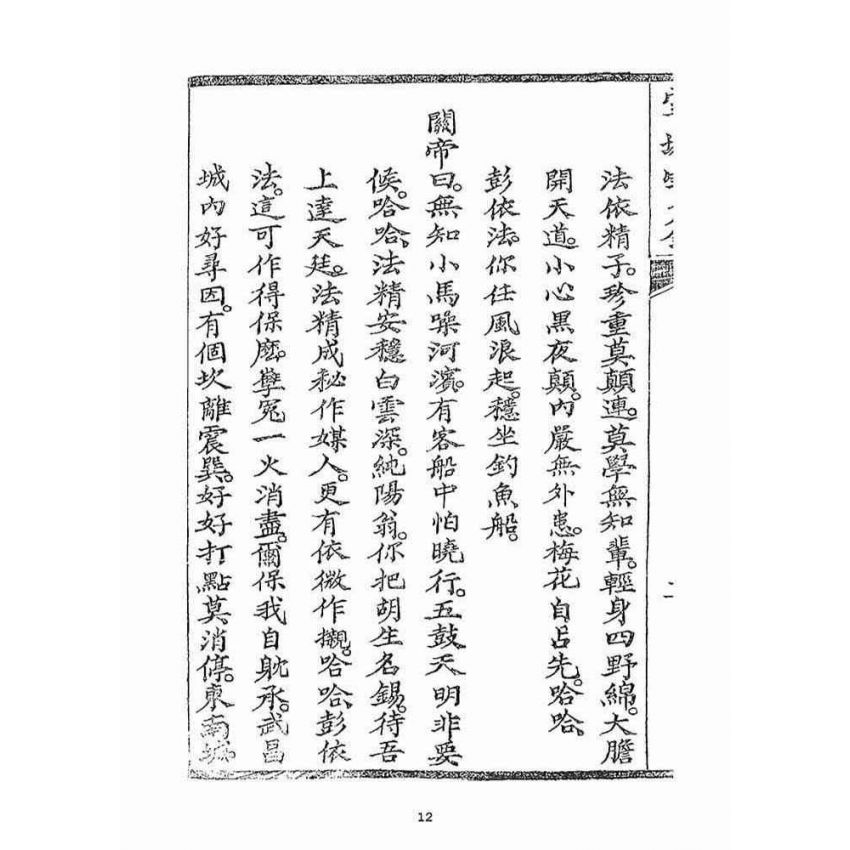 法依精子。珍重莫顛連。莫學無知輩。輕身四野綿。大膽
開天道。小心黑夜顛。內嚴無外患。梅花自占先。哈哈。
彭依法。你任風浪起。穩坐釣魚船。
關帝曰。無知小馬噪河濱。有客船中怕曉行。五鼓天明非要
候。哈哈。法精安穩白雲深。純陽翁。你把胡生名錫。待吾
上達天廷。法精成秘作媒人。更有依微作櫬。哈哈。彭依
法。這可作得保麽。孽冤一火消盡。爾保我自躭承。武昌
城內好尋因。有個坎離震巽。好好打點莫消停。東南城
12